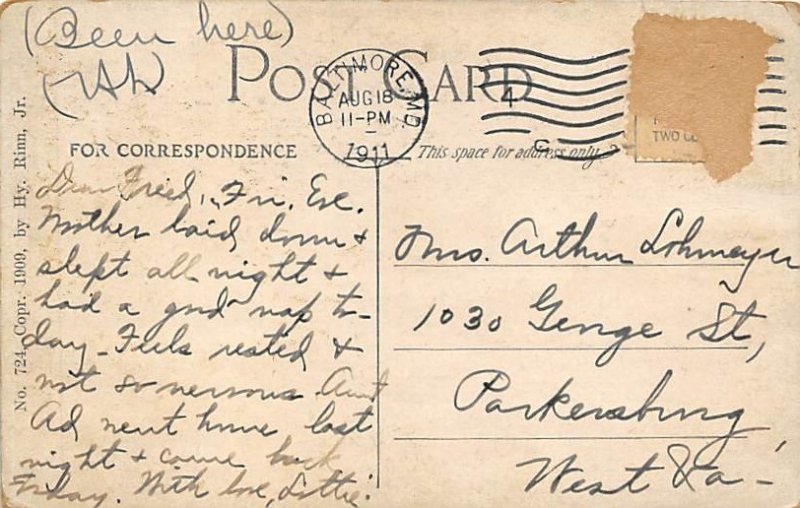 (Been here)
POST CARD
BALTIMORE, MD.
AUG 18
11-PM
1911
4
C
FOR CORRESPONDENCE
This space for address only
TWO
No. 724, Copr. 1909, by Hy. Rinn, Jr.
Dear Freed, Fri. Eve.
Mother laid down &
slept all night &
had a good nap to-
day - Feels rested &
not so nervous. Aunt
Ad went home last
night & came back
Friday. With love, Lottie.
Mrs. Arthur Lohmeyer
1030 George St,
Parkersburg,
West Va -